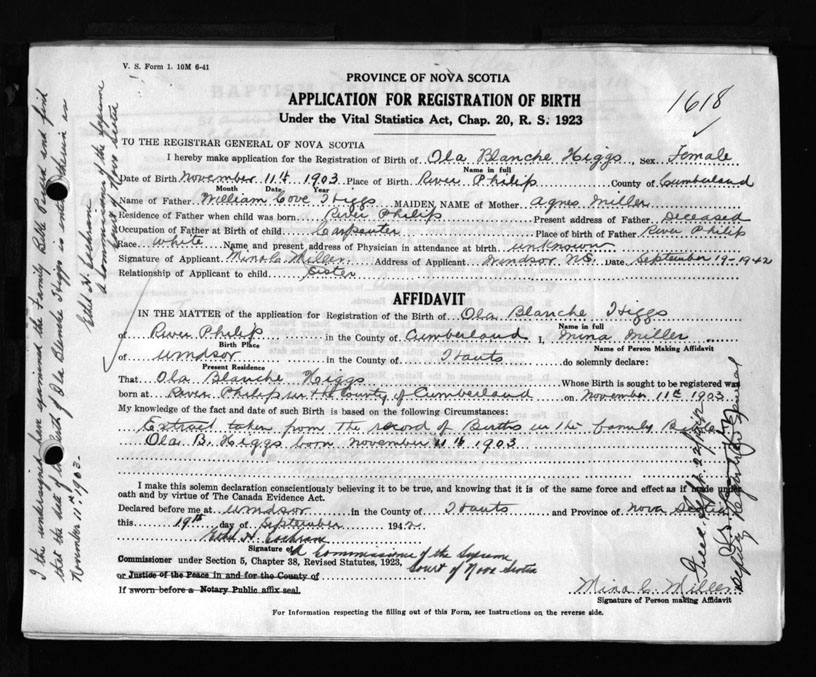 V. S. Form 1. 10M 6-41
PROVINCE OF NOVA SCOTIA
APPLICATION FOR REGISTRATION OF BIRTH
1618
Under the Vital Statistics Act, Chap. 20, R. S. 1923
TO THE REGISTRAR GENERAL OF NOVA SCOTIA
I hereby make application for the Registration of Birth of Ola Blanche Higgs Sex Female
Name in full
Date of Birth November 11th 1903 Place of Birth River Philip County of Cumberland
Month Date Year
Name of Father William Cove Higgs MAIDEN NAME of Mother Agnes Miller
Residence of Father when child was born River Philip Present address of Father Deceased
Occupation of Father at Birth of child Carpenter Place of birth of Father River Philip
Race White Name and present address of Physician in attendance at birth unknown
Signature of Applicant Mina C. Miller Address of Applicant Windsor N.S. Date September 19-1942
Relationship of Applicant to child Sister
AFFIDAVIT
IN THE MATTER of the application for Registration of the Birth of Ola Blanche Higgs
Name in full
of River Philip in the County of Cumberland I, Mina Miller
Birth Place Name of Person Making Affidavit
of Windsor in the County of Hants do solemnly declare:
Present Residence
That Ola Blanche Higgs Whose Birth is sought to be registered was
born at River Philip in the County of Cumberland on November 11th 1903
My knowledge of the fact and date of such Birth is based on the following Circumstances:
Extract taken from the record of Births in the family Bible
Ola B. Higgs born November 11th 1903
I make this solemn declaration conscientiously believing it to be true, and knowing that it is of the same force and effect as if made under
oath and by virtue of The Canada Evidence Act.
Declared before me at Windsor in the County of Hants and Province of Nova Scotia
this 19th day of September 1942
Ethel H. Cochran
Signature of A Commissioner of the Supreme
Commissioner under Section 5, Chapter 38, Revised Statutes, 1923, Court of Nova Scotia
or Justice of the Peace in and for the County of
If sworn before a Notary Public affix seal.
Mina C. Miller
Signature of Person making Affidavit
For Information respecting the filling out of this Form, see Instructions on the reverse side.
I the undersigned have examined the Family Bible Record and find
that the date of the birth of Ola Blanche Higgs is entered therein as
November 11th 1903.
Ethel H. Cochran
A Commissioner of the Supreme
Court of Nova Scotia
Deputy Registrar General